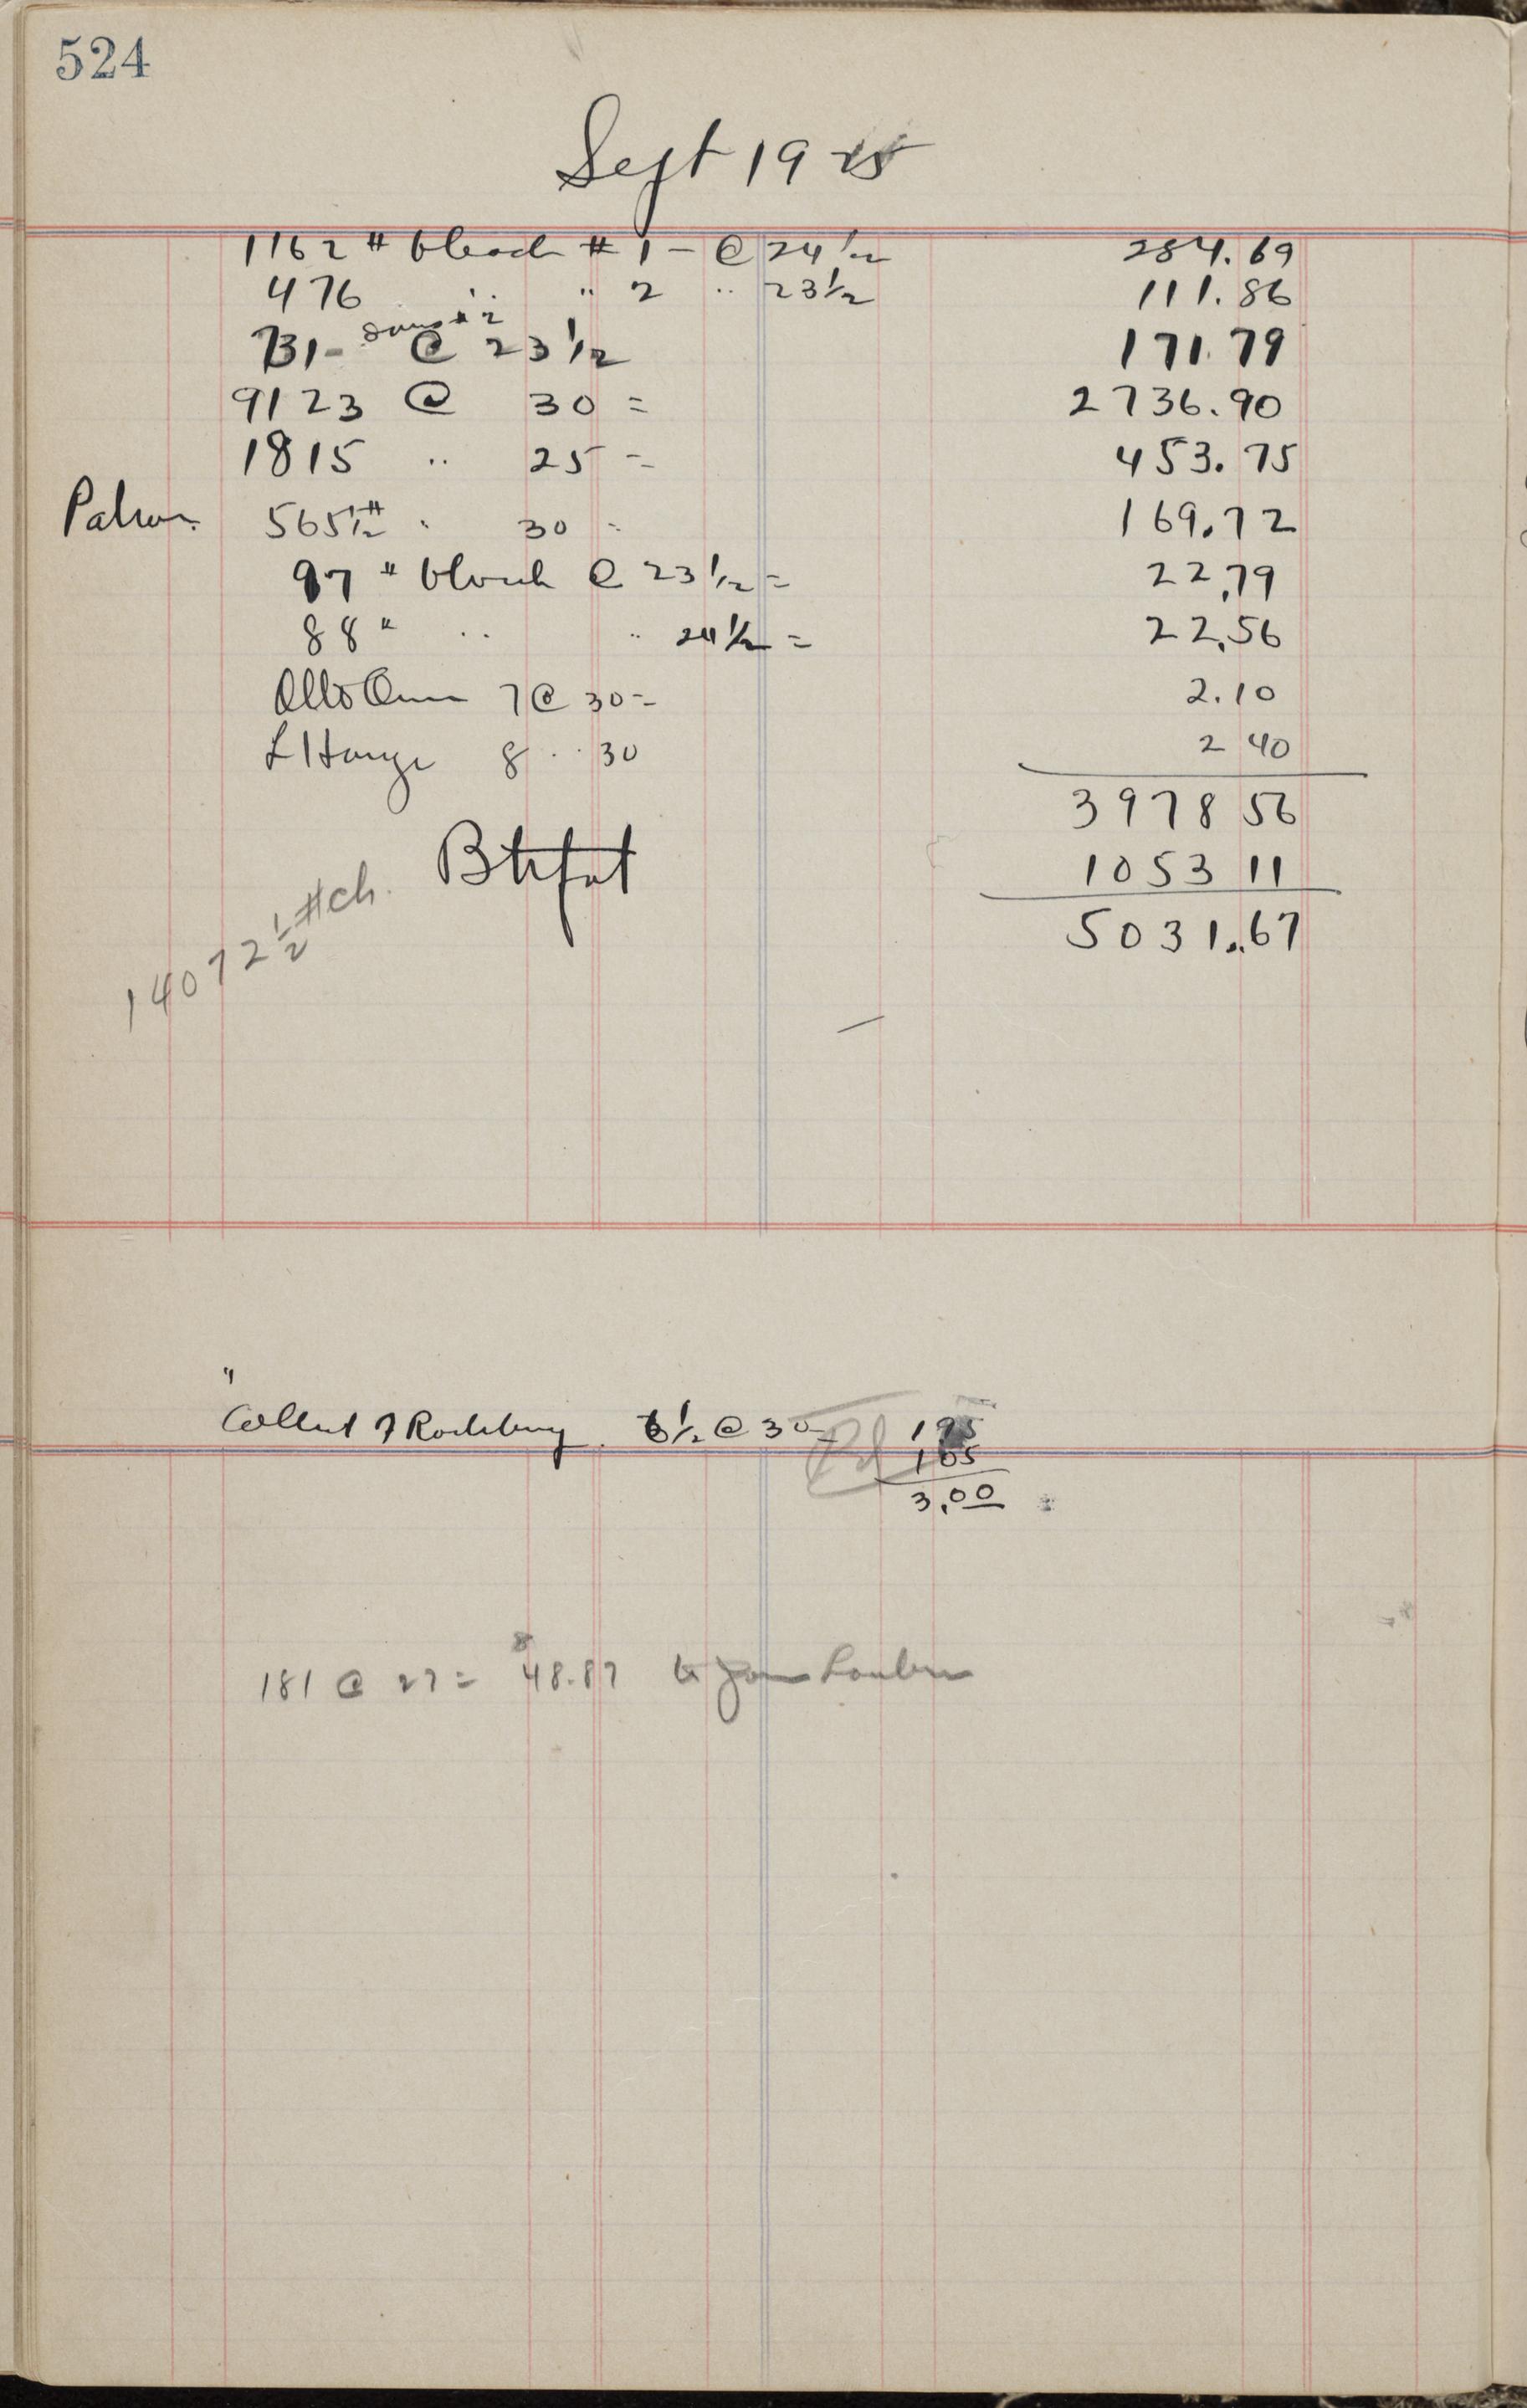 524
Sept 19 25
1162 # block # 1 - @ 24 1/2 284.69
476 " " 2 " 23 1/2 111.86
731 - same # 2 @ 23 1/2 171.79
9123 @ 30 = 2736.90
1815 " 25 = 453.75
Patron. 565 1/2 # " 30 = 169.72
97 # block @ 23 1/2 = 22.79
88 " " " 24 1/2 = 22.56
Otto 7 @ 30 = 2.10
L 8 " 30 2 40
3978 56
Btrfat 1053 11
14072 1/2 # ch.
5031.67
"
Collect 7 6 1/2 @ 30 = 195
Pd 105
3.00
181 @ 27 = 48.87 to